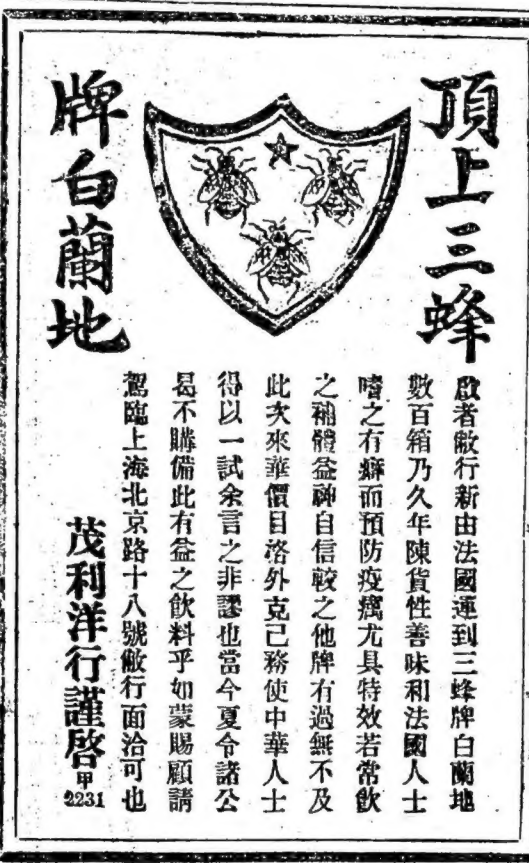 頂上三蜂
牌白蘭地
啟者敝行新由法國運到三蜂牌白蘭地
數百箱乃久年陳貨性善味和法國人士
嗜之有癖而預防疫癘尤具特效若常飲
之補體益神自信較之他牌有過無不及
此次來華價目洛外克己務使中華人士
得以一試余言之非謬也當今夏令諸公
曷不購備此有益之飲料乎如蒙賜顧請
駕臨上海北京路十八號敝行面洽可也
茂利洋行謹啓
甲
2231